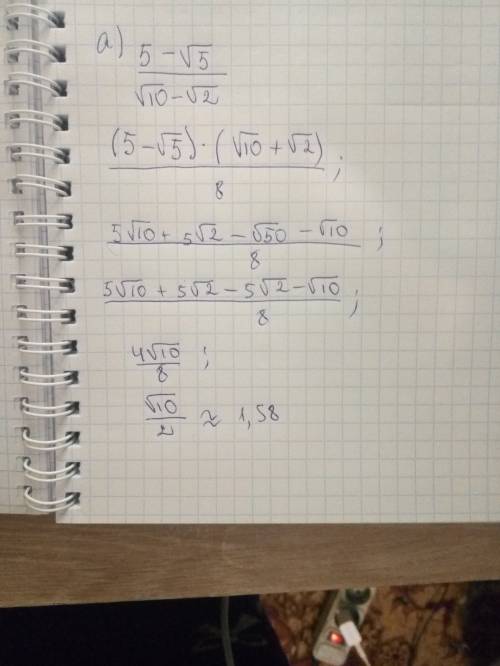 а) (5 - √5)/(√10 - √2)
((5 - √5) · (√10 + √2))/8 ;
(5√10 + 5√2 - √50 - √10)/8 ;
(5√10 + 5√2 - 5√2 - √10)/8 ;
4√10/8 ;
√10/2 ≈ 1,58